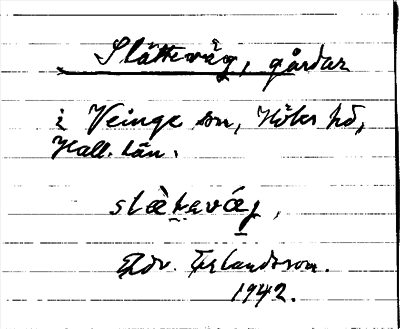 Slättevåg, gårdar
i Veinge sn, Höks hd,
Hall. län.
slàtevág,
Edv. Erlandsson.
1942.